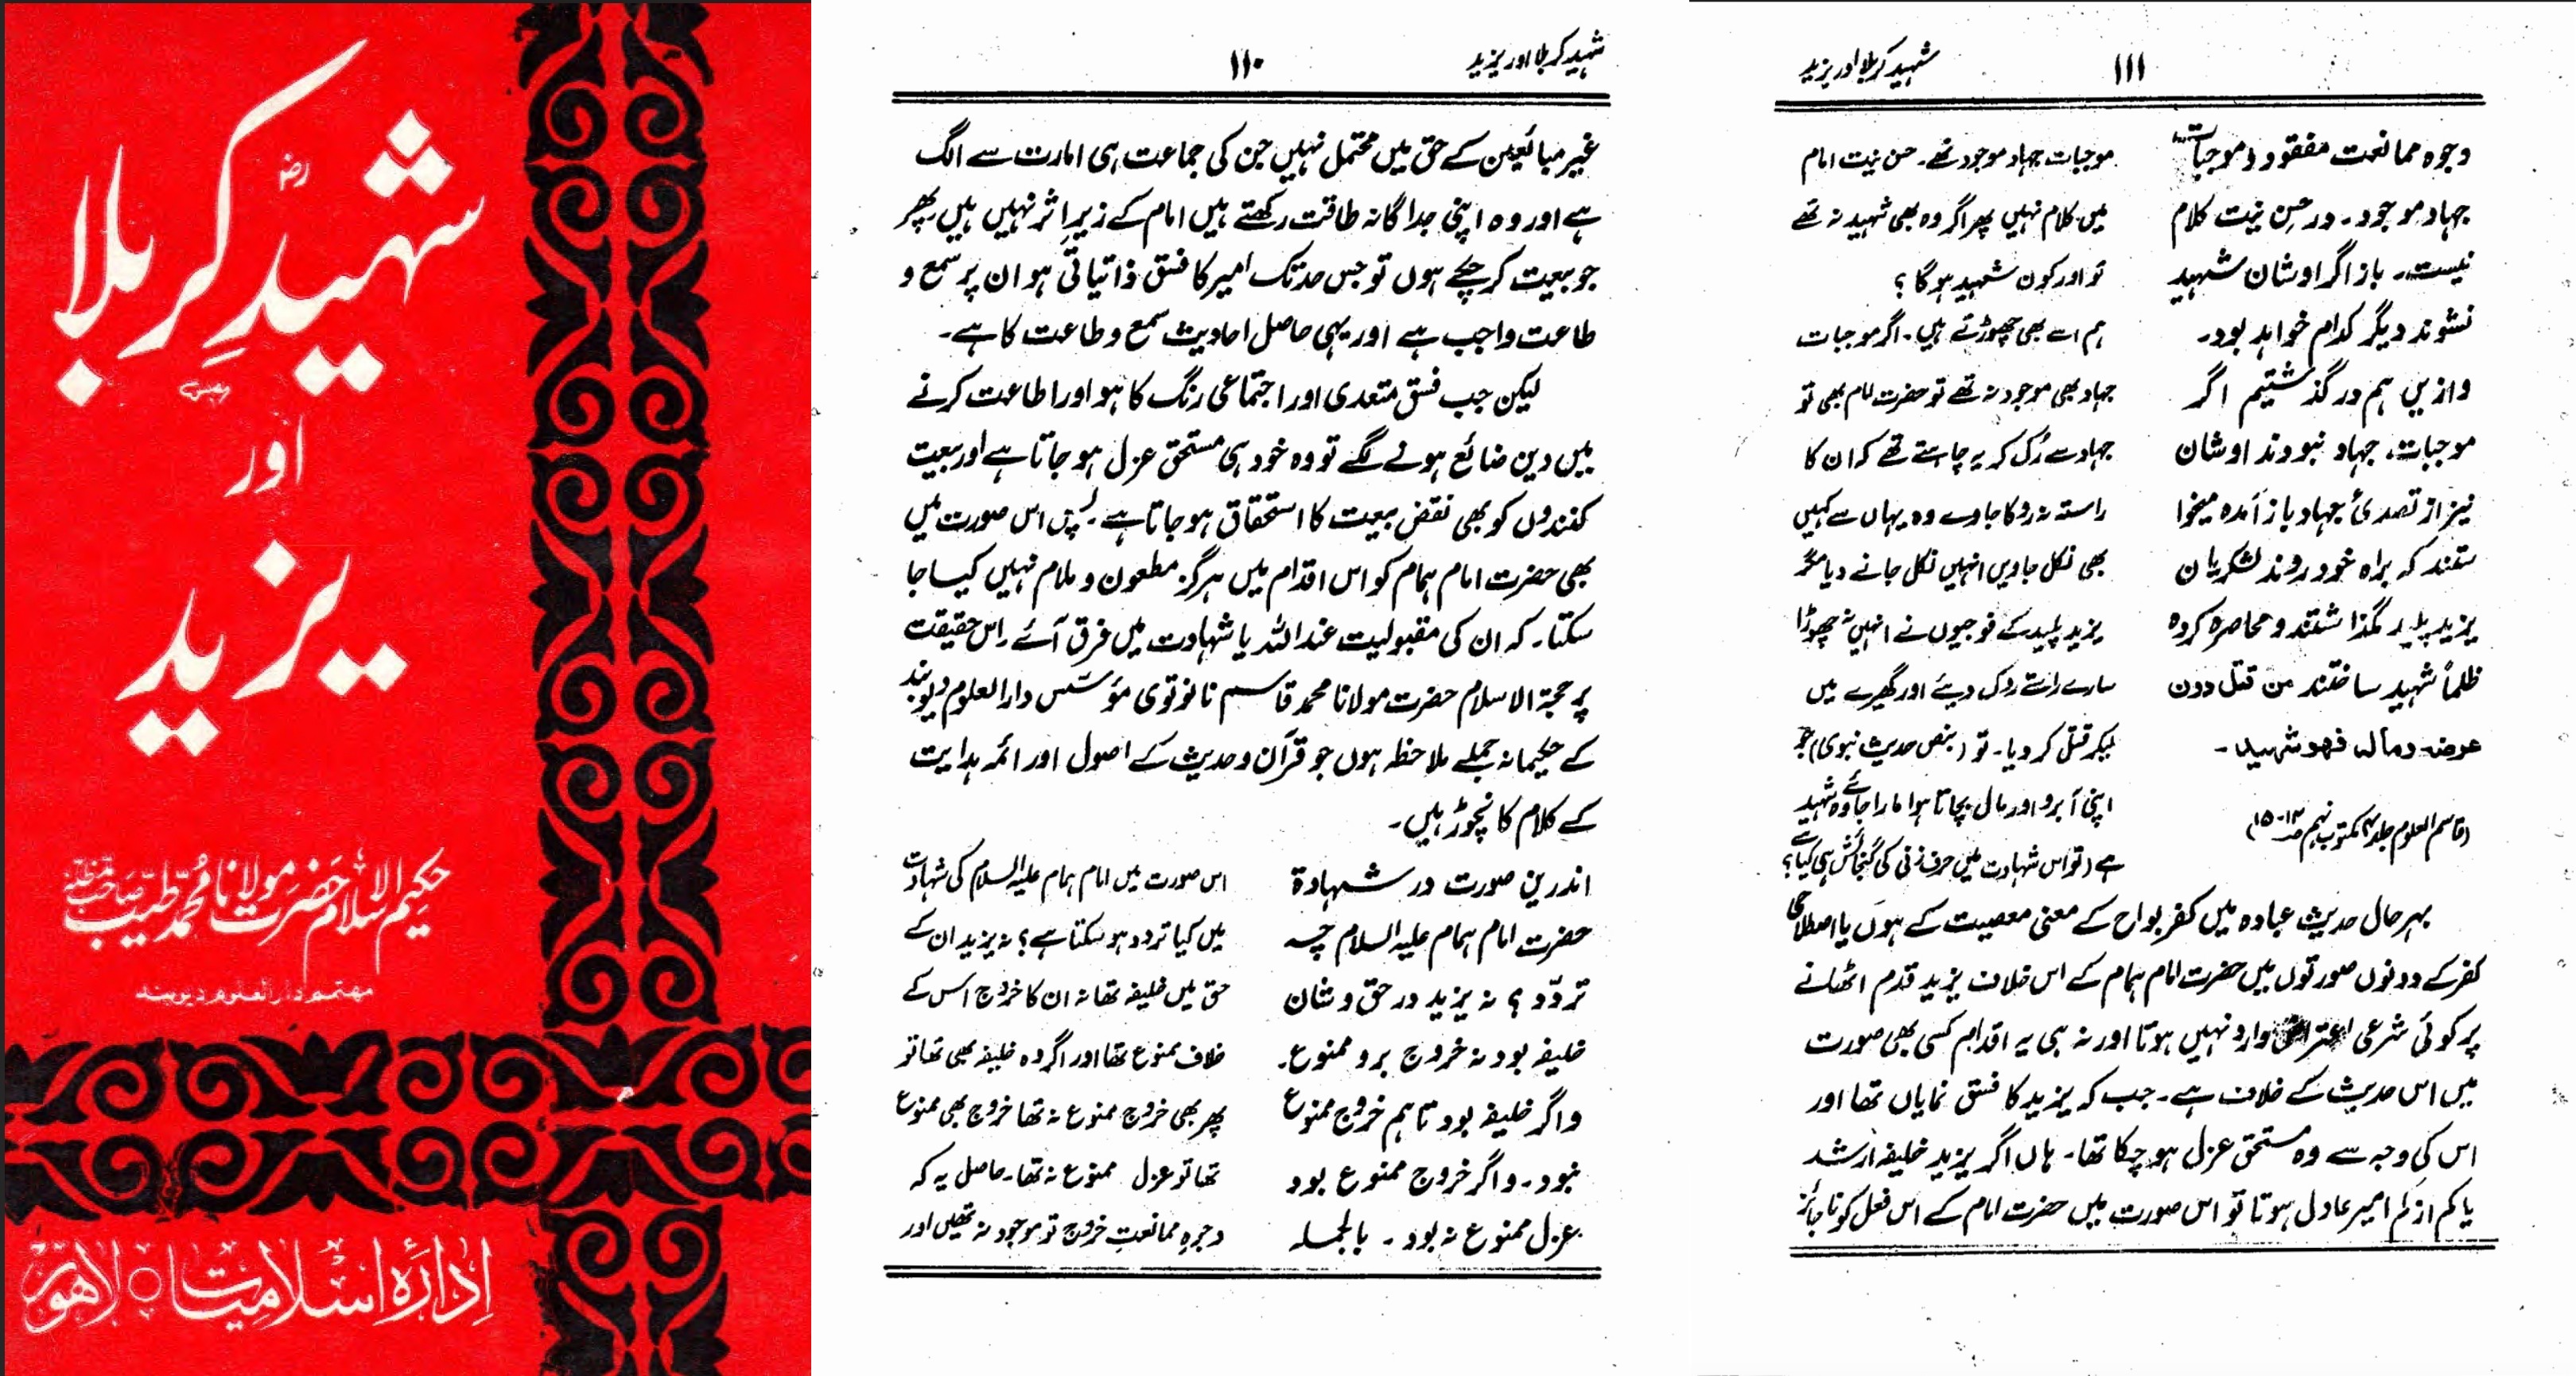 شہیدِ کربلا
رض
اور
یزید
حکیم الاسلام حضرت مولانا محمد طیب صاحب مدظلہ
مہتمم دارالعلوم دیوبند
ادارۂ اسلامیات ○ لاہور
شہید کربلا اور یزید
۱۱۰
غیر مبائعین کے حق میں محتمل نہیں جن کی جماعت ہی امارت سے الگ
ہے اور وہ اپنی جداگانہ طاقت رکھتے ہیں امام کے زیرِ اثر نہیں ہیں پھر
جو بیعت کر چکے ہوں تو جس حد تک امیر کا فسق ذاتیاتی ہو ان پر سمع و
طاعت واجب ہے اور یہی حاصل احادیث سمع و طاعت کا ہے۔
لیکن جب فسق متعدی اور اجتماعی رنگ کا ہو اور اطاعت کرنے
میں دین ضائع ہونے لگے تو وہ خود ہی مستحق عزل ہو جاتا ہے اور بیعت
کنندوں کو بھی نقض بیعت کا استحقاق ہو جاتا ہے۔ پس اس صورت میں
بھی حضرت امام ہمام کو اس اقدام میں ہرگز مطعون و ملام نہیں کیا جا
سکتا۔ کہ ان کی مقبولیت عنداللہ یا شہادت میں فرق آئے۔ اس حقیقت
پر حجۃ الاسلام حضرت مولانا محمد قاسم نانوتوی مؤسس دارالعلوم دیوبند
کے حکیمانہ جملے ملاحظہ ہوں جو قرآن و حدیث کے اصول اور ائمہ ہدایت
کے کلام کا نچوڑ ہیں۔
اندریں صورت در شہادۃ
حضرت امام ہمام علیہ السلام چہ
تردّد؟ نہ یزید در حق و شان
خلیفہ بود نہ خروج برو ممنوع۔
واگر خلیفہ بود تاہم خروج ممنوع
نبود۔ واگر خروج ممنوع بود
عزل ممنوع نہ بود۔ بالجملہ
اس صورت میں امام ہمام علیہ السلام کی شہادت
میں کیا تردد ہو سکتا ہے؟ نہ یزید ان کے
حق میں خلیفہ تھا نہ ان کا خروج اس کے
خلاف ممنوع تھا اور اگر وہ خلیفہ بھی تھا تو
پھر بھی خروج ممنوع نہ تھا خروج بھی ممنوع
تھا تو عزل ممنوع نہ تھا۔ حاصل یہ کہ
وجوہِ ممانعتِ خروج تو موجود نہ تھیں اور
شہید کربلا اور یزید
۱۱۱
وجوہ ممانعت مفقود و موجبات
جہاد موجود۔ در حسن نیت کلام
نیست۔ باز اگر اوشان شہید
نشوند دیگر کدام خواہد بود۔
وازیں ہم در گذشتیم اگر
موجبات جہاد نبودند اوشان
نیز از تصدئ جہاد باز آمدہ میخوا
ستند کہ براہ خود روند لشکریان
یزید پلید نگذاشتند و محاصرہ کردہ
ظلماً شہید ساختند من قتل دون
عرضہ و مالہ فھو شہید۔
(قاسم العلوم جلد ۴ مکتوب نہم ص۱۴-۱۵)
موجبات جہاد موجود تھے۔ حسن نیت امام
میں کلام نہیں پھر اگر وہ بھی شہید نہ تھے
تو اور کون شہید ہوگا؟
ہم اسے بھی چھوڑتے ہیں۔ اگر موجبات
جہاد بھی موجود نہ تھے تو حضرت امام بھی تو
جہاد سے رُک کر یہ چاہتے تھے کہ ان کا
راستہ نہ روکا جاوے وہ یہاں سے کہیں
بھی نکل جاویں انہیں نکل جانے دیا مگر
یزید پلید کے فوجیوں نے انہیں نہ چھوڑا
سارے راستے روک دیئے اور گھیرے میں
لیکر قتل کر دیا۔ تو (بنص حدیث نبوی) جو
اپنی آبرو اور مال بچاتا ہوا مارا جائے وہ شہید
ہے (تو اس شہادت میں حرف زنی کی گنجائش ہی کیا ہے؟
بہر حال حدیث عبادہ میں کفر بواح کے معنی معصیت کے ہوں یا اصطلاحی
کفر کے دونوں صورتوں میں حضرت امام ہمام کے اس خلاف یزید قدم اٹھانے
پر کوئی شرعی اعتراض وارد نہیں ہوتا اور نہ ہی یہ اقدام کسی بھی صورت
میں اس حدیث کے خلاف ہے۔ جب کہ یزید کا فسق نمایاں تھا اور
اس کی وجہ سے وہ مستحق عزل ہو چکا تھا۔ ہاں اگر یزید خلیفہ ارشد
یا کم از کم امیر عادل ہوتا تو اس صورت میں حضرت امام کے اس فعل کو ناجائز